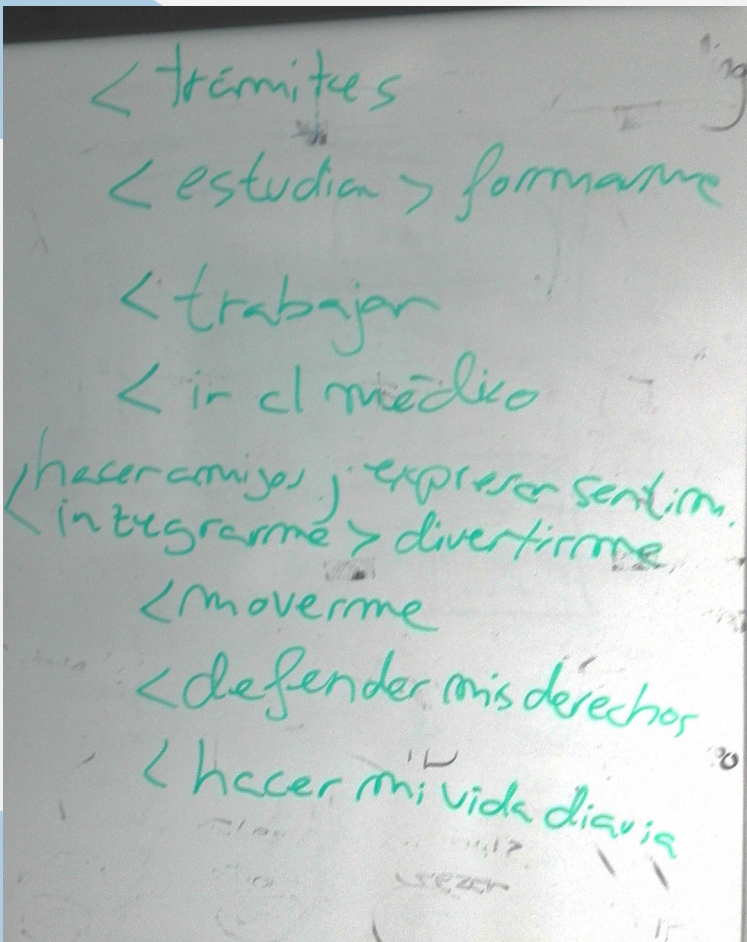 < trámites
< estudiar > formarme
< trabajar
< ir al médico
hacer amigos; expresar sentim.
< integrarme > divertirme
< moverme
< defender mis derechos
< hacer mi vida diaria